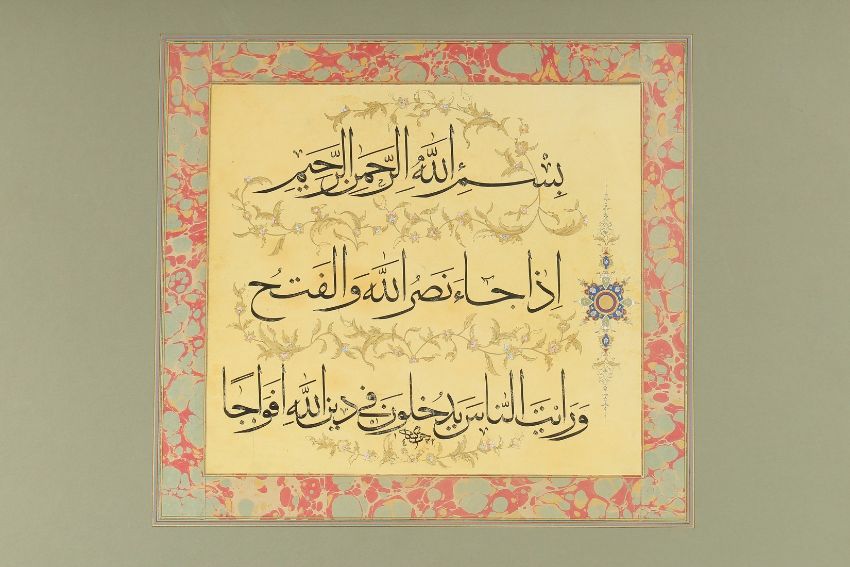 بِسْمِ اللَّهِ الرَّحْمنِ الرَّحِيمِ
اِذَا جَاءَ نَصْرُ اللَّهِ وَالْفَتْحُ
وَرَاَيْتَ النَّاسَ يَدْخُلُونَ فِي دِينِ اللَّهِ اَفْوَاجًا